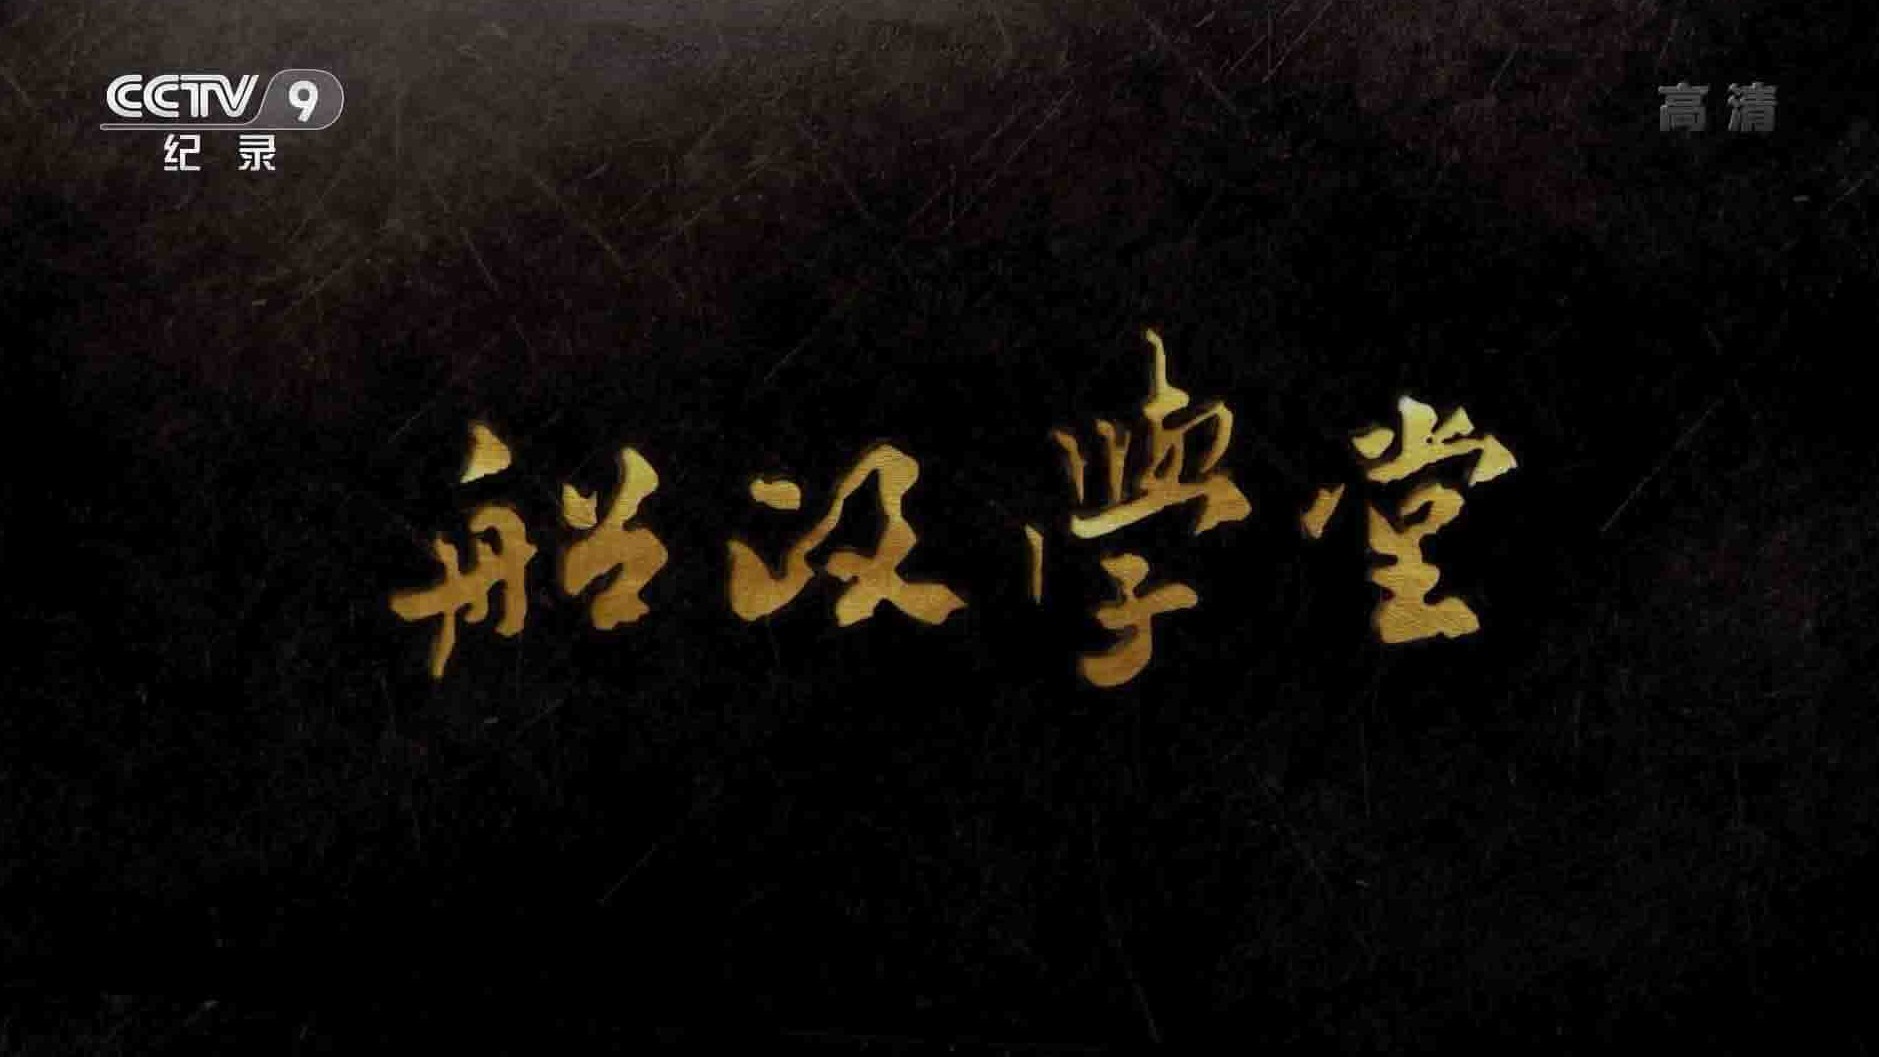 CCTV 9
纪录
高清
船政学堂